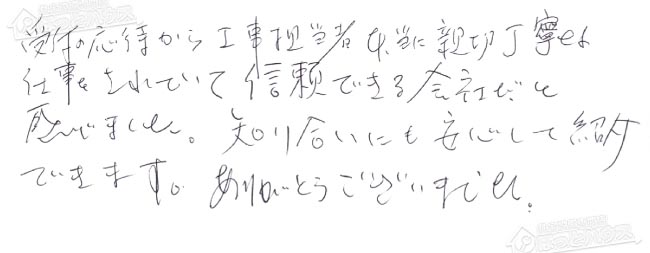 受付の応待から工事担当者本当に親切丁寧な
仕事をされていて信頼できる会社だと
感じました。知り合いにも安心して紹介
できます。ありがとうございました。